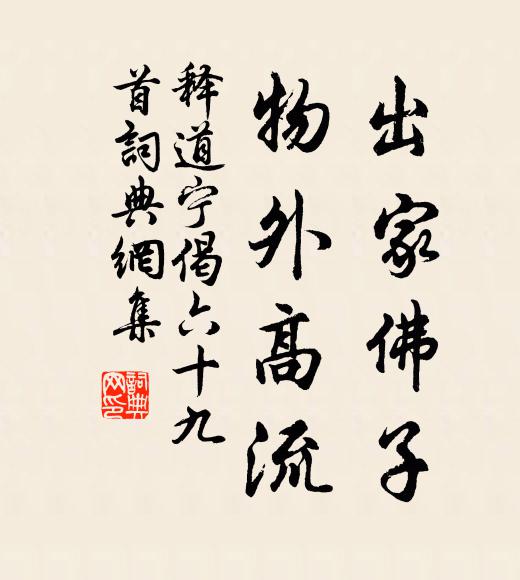 出家佛子
物外高流
释道宁偈六十九
首詞典網集
詞典
网印